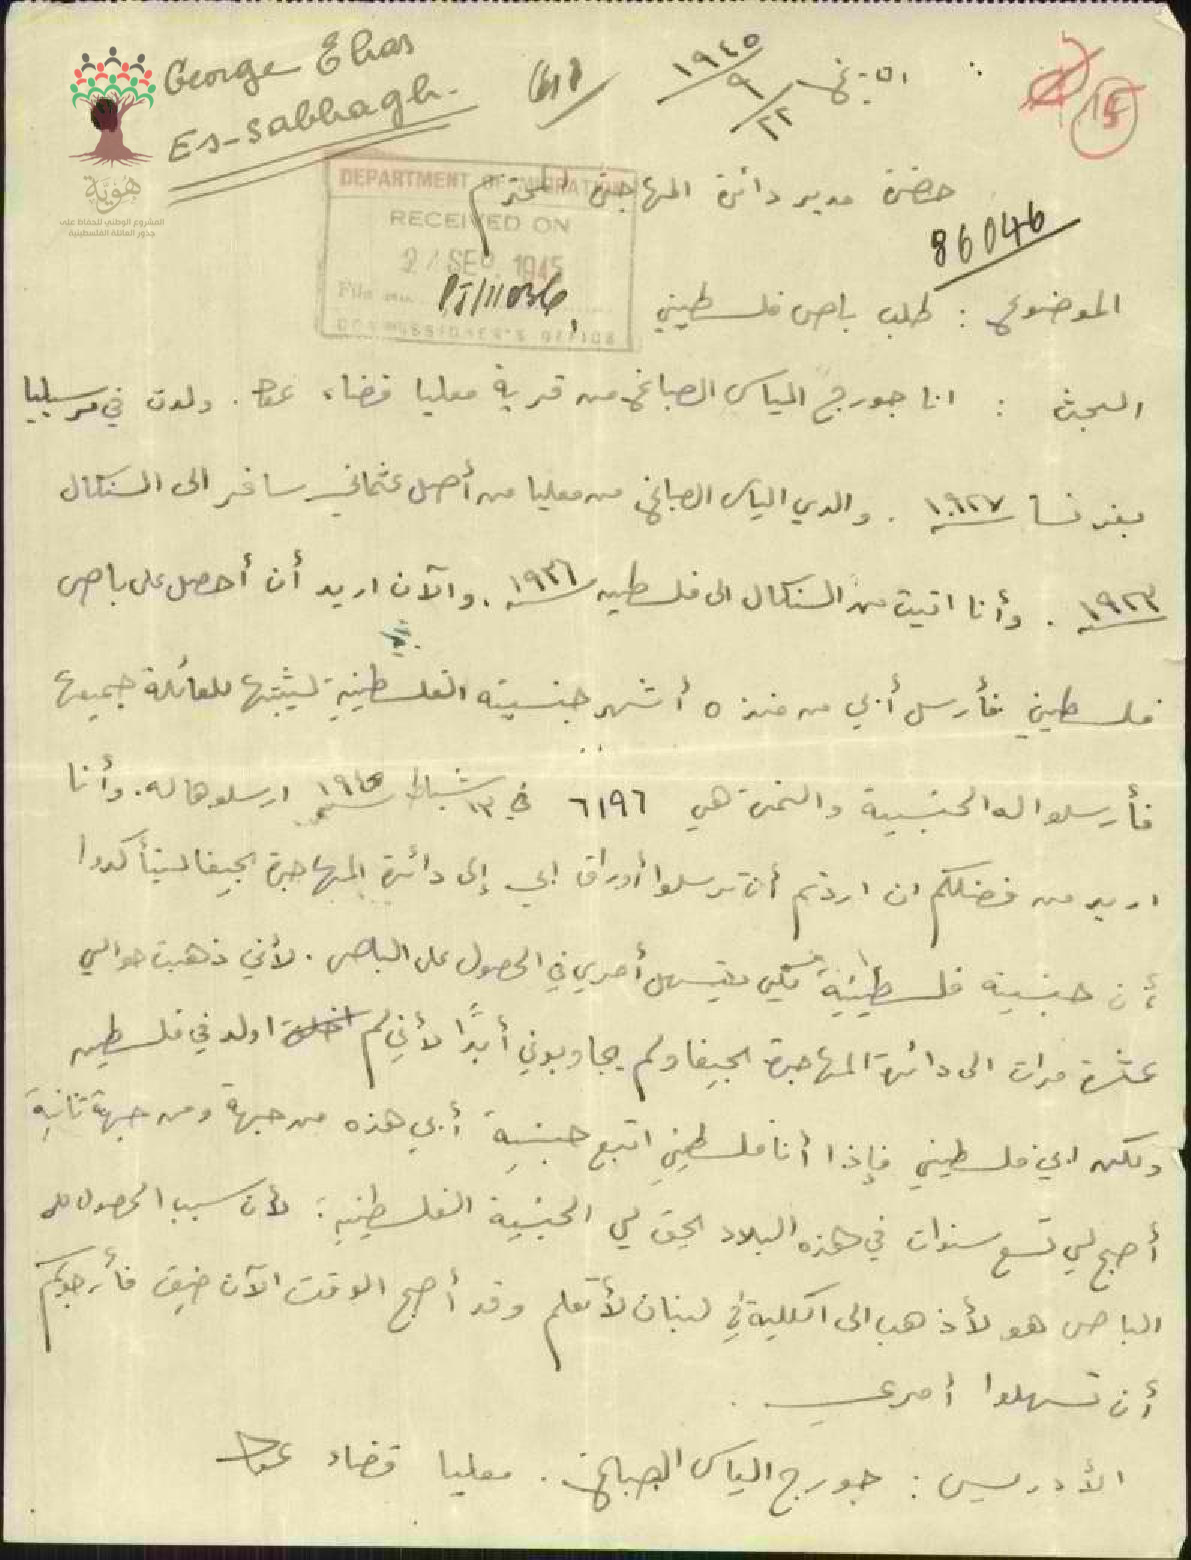 George Elias
Es-Sabbagh.
التاريخ ٢٢/٩/١٩٤٥
15
هُوِيَّة
المشروع الوطني للحفاظ على
جذور العائلة الفلسطينية
حضرة مدير دائرة المهاجرة المحترم
DEPARTMENT OF MIGRATION
RECEIVED ON
SEP 1945
86046
File No.
COMMISSIONER'S OFFICE
الموضوع : طلب باص فلسطيني
البحث : انا جورج الياس الصباغ من قرية معليا قضاء عكا. ولدت في مرسيليا
بفرنسا سنة ١٩٢٧ . والدي الياس الصباغ من معليا من أصل عثماني سافر الى السنكال
سنة ١٩٢٣ . وأنا اتيت من السنكال الى فلسطين سنة ١٩٣٦ . والآن اريد أن أحصل على باص
فلسطيني فأرسل أبي من منذ ٥ أشهر جنسيته الفلسطينية ليثبتها للعائلة جميعها
فأرسلوا له الجنسية والنمرة هي ٦١٩٦ في ١٣ شباط سنة ١٩٤٥ ارسلوها له. وأنا
اريد من فضلكم ان اردتم أن ترسلوا أوراق ابي إلى دائرة المهاجرة بحيفا ليتأكدوا
أن جنسيته فلسطينية لكي يتسهل أمري في الحصول على الباص . لأني ذهبت حوالي
عشرة مرات الى دائرة المهاجرة بحيفا ولم يجاوبوني أبدًا لأني لم اولد في فلسطين
ولكن ابي فلسطيني فإذا أنا فلسطيني اتبع جنسية أبي هذه من جهة ومن جهة ثانية
أصبح لي تسع سنوات في هذه البلاد يحق لي الجنسية الفلسطينية: لأن سبب الحصول على
الباص هو لأذهب الى الكلية في لبنان لأتعلم وقد أصبح الوقت الآن ضيق فأرجوكم
أن تسهلوا أمري .
الأدريس : جورج الياس الصباغ . معليا قضاء عكا